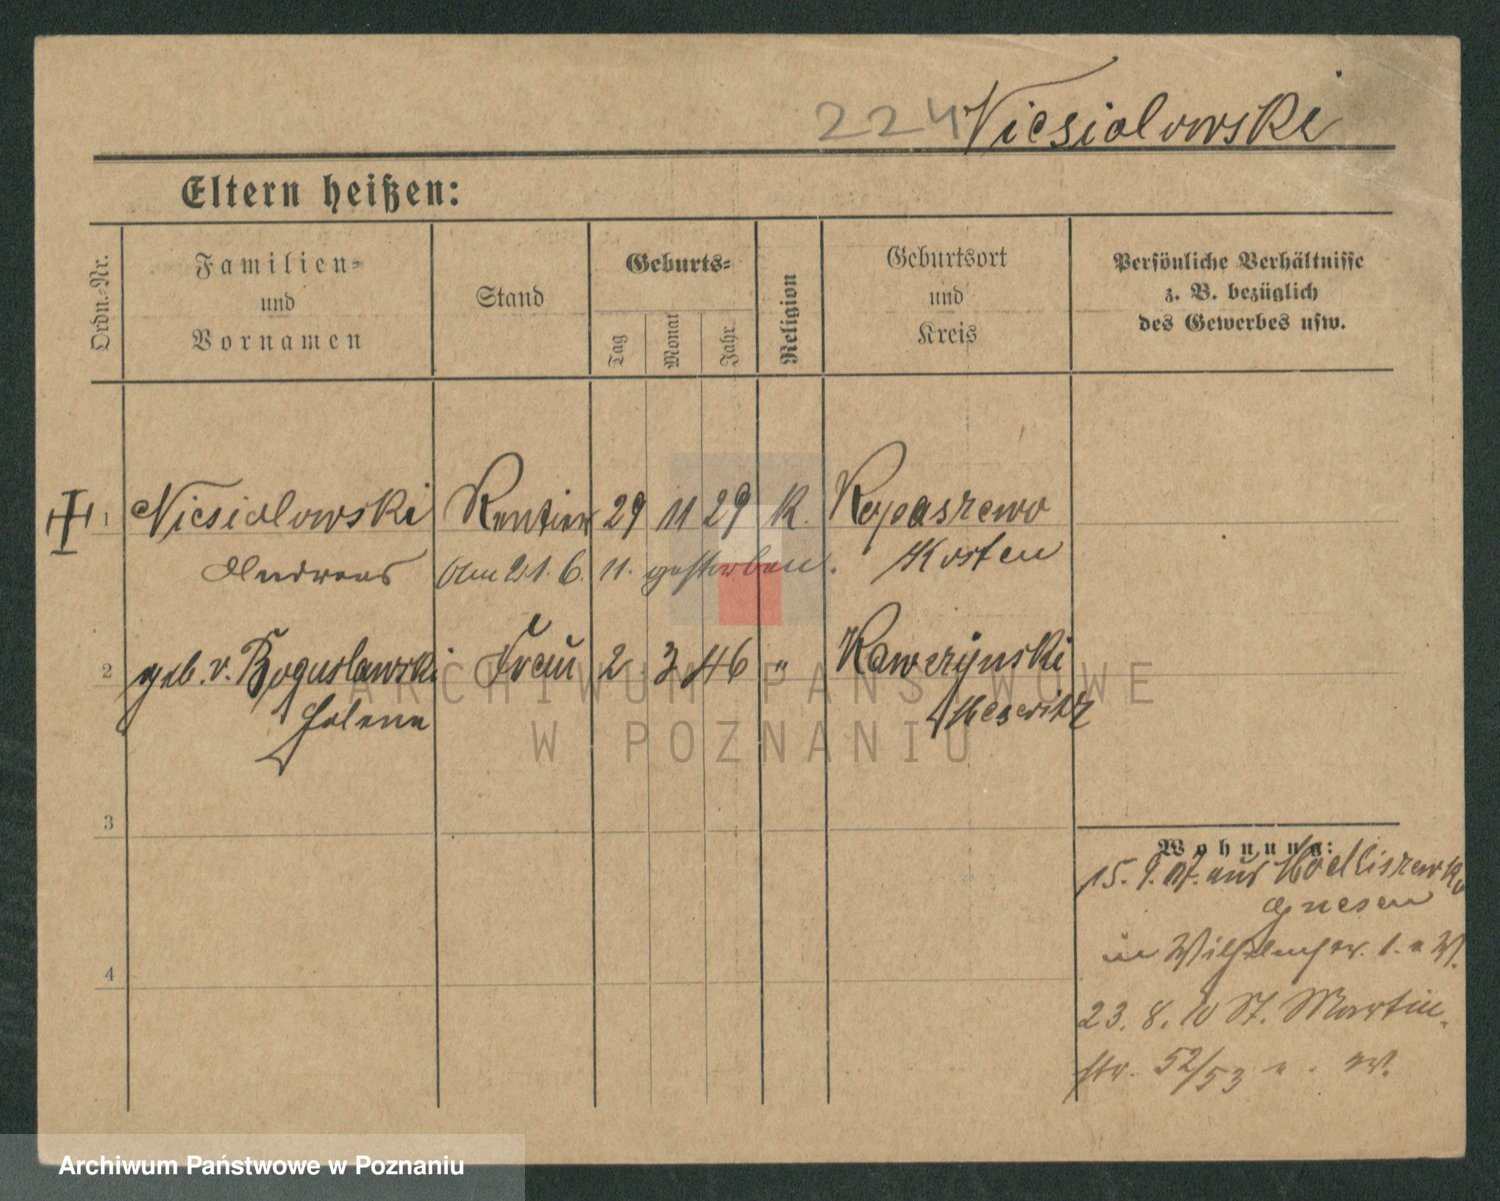 224 Niesiolowski
Eltern heißen:
Ordn.-Nr.
Familien-
und
Vornamen
Stand
Geburts-
Tag
Monat
Jahr
Religion
Geburtsort
und
Kreis
Persönliche Verhältnisse
z. B. bezüglich
des Gewerbes usw.
1 Niesiolowski Rentier 29 11 29 K. Kopaszewo
Andreas Am 21. 6. 11. gestorben. Kosten
2 geb. v. Boguslawski Frau 2 3 46 "
Helene Meseritz
3
Wohnung:
15. 9. 07. aus Modliszewko
Gnesen
in
4
23. 8. 10 St. Martin-
str. 52/53
ARCHIWUM PAŃSTWOWE
W POZNANIU
Archiwum Państwowe w Poznaniu